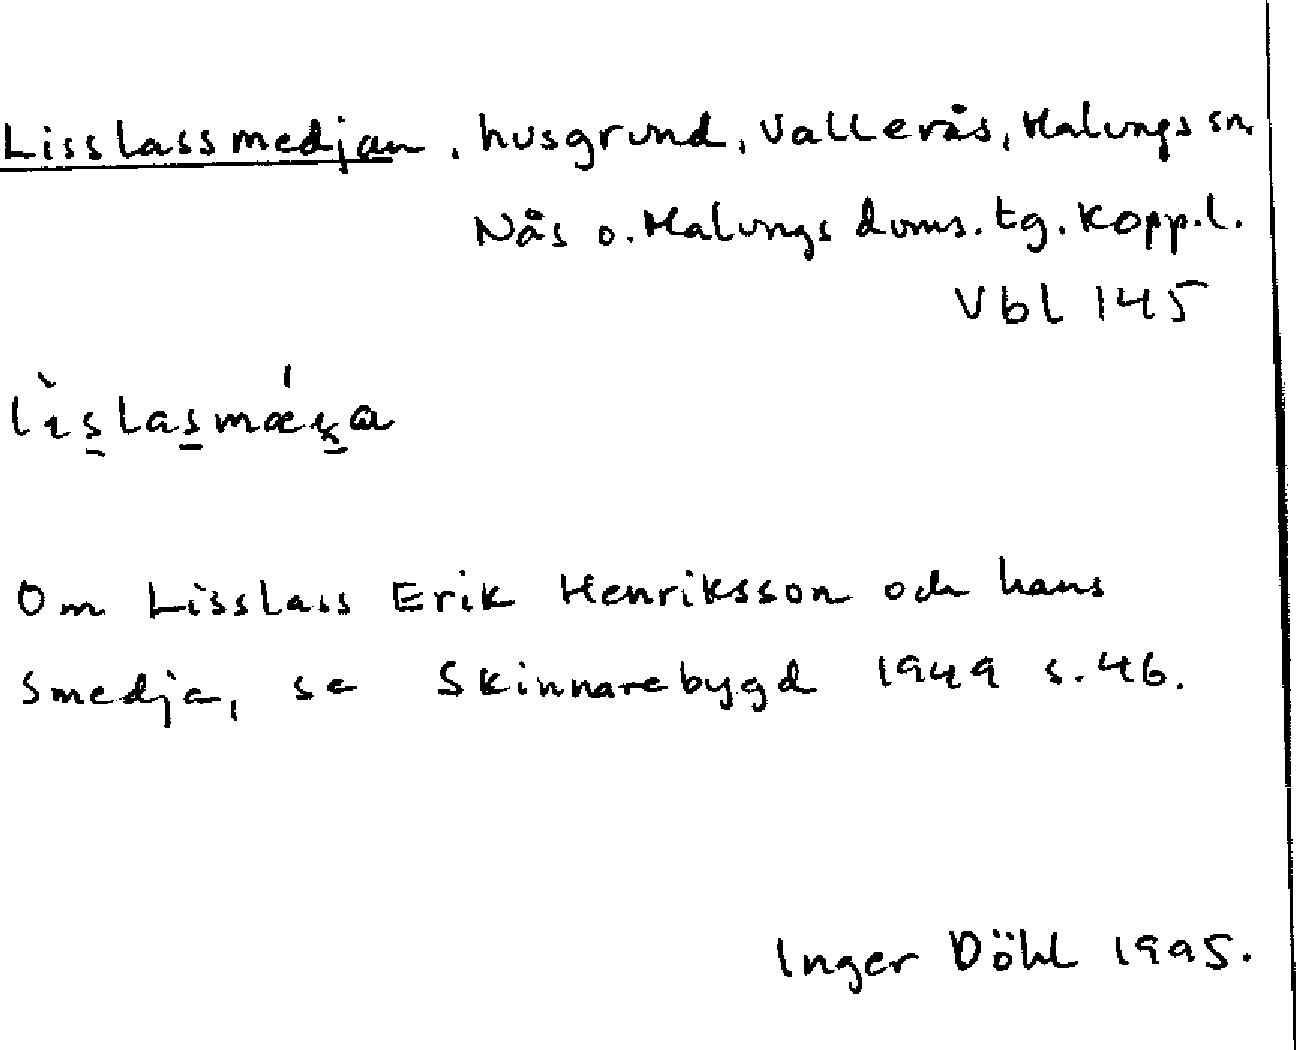 Lisslassmedjan, husgrund, Vallerås, Malungs sn
Nås o. Malungs doms. tg. Kopp.l.
Vbl 145
Om Lisslass Erik Henriksson och hans
smedja, se Skinnarebygd 1949 s.46.
Inger Döhl 1995.